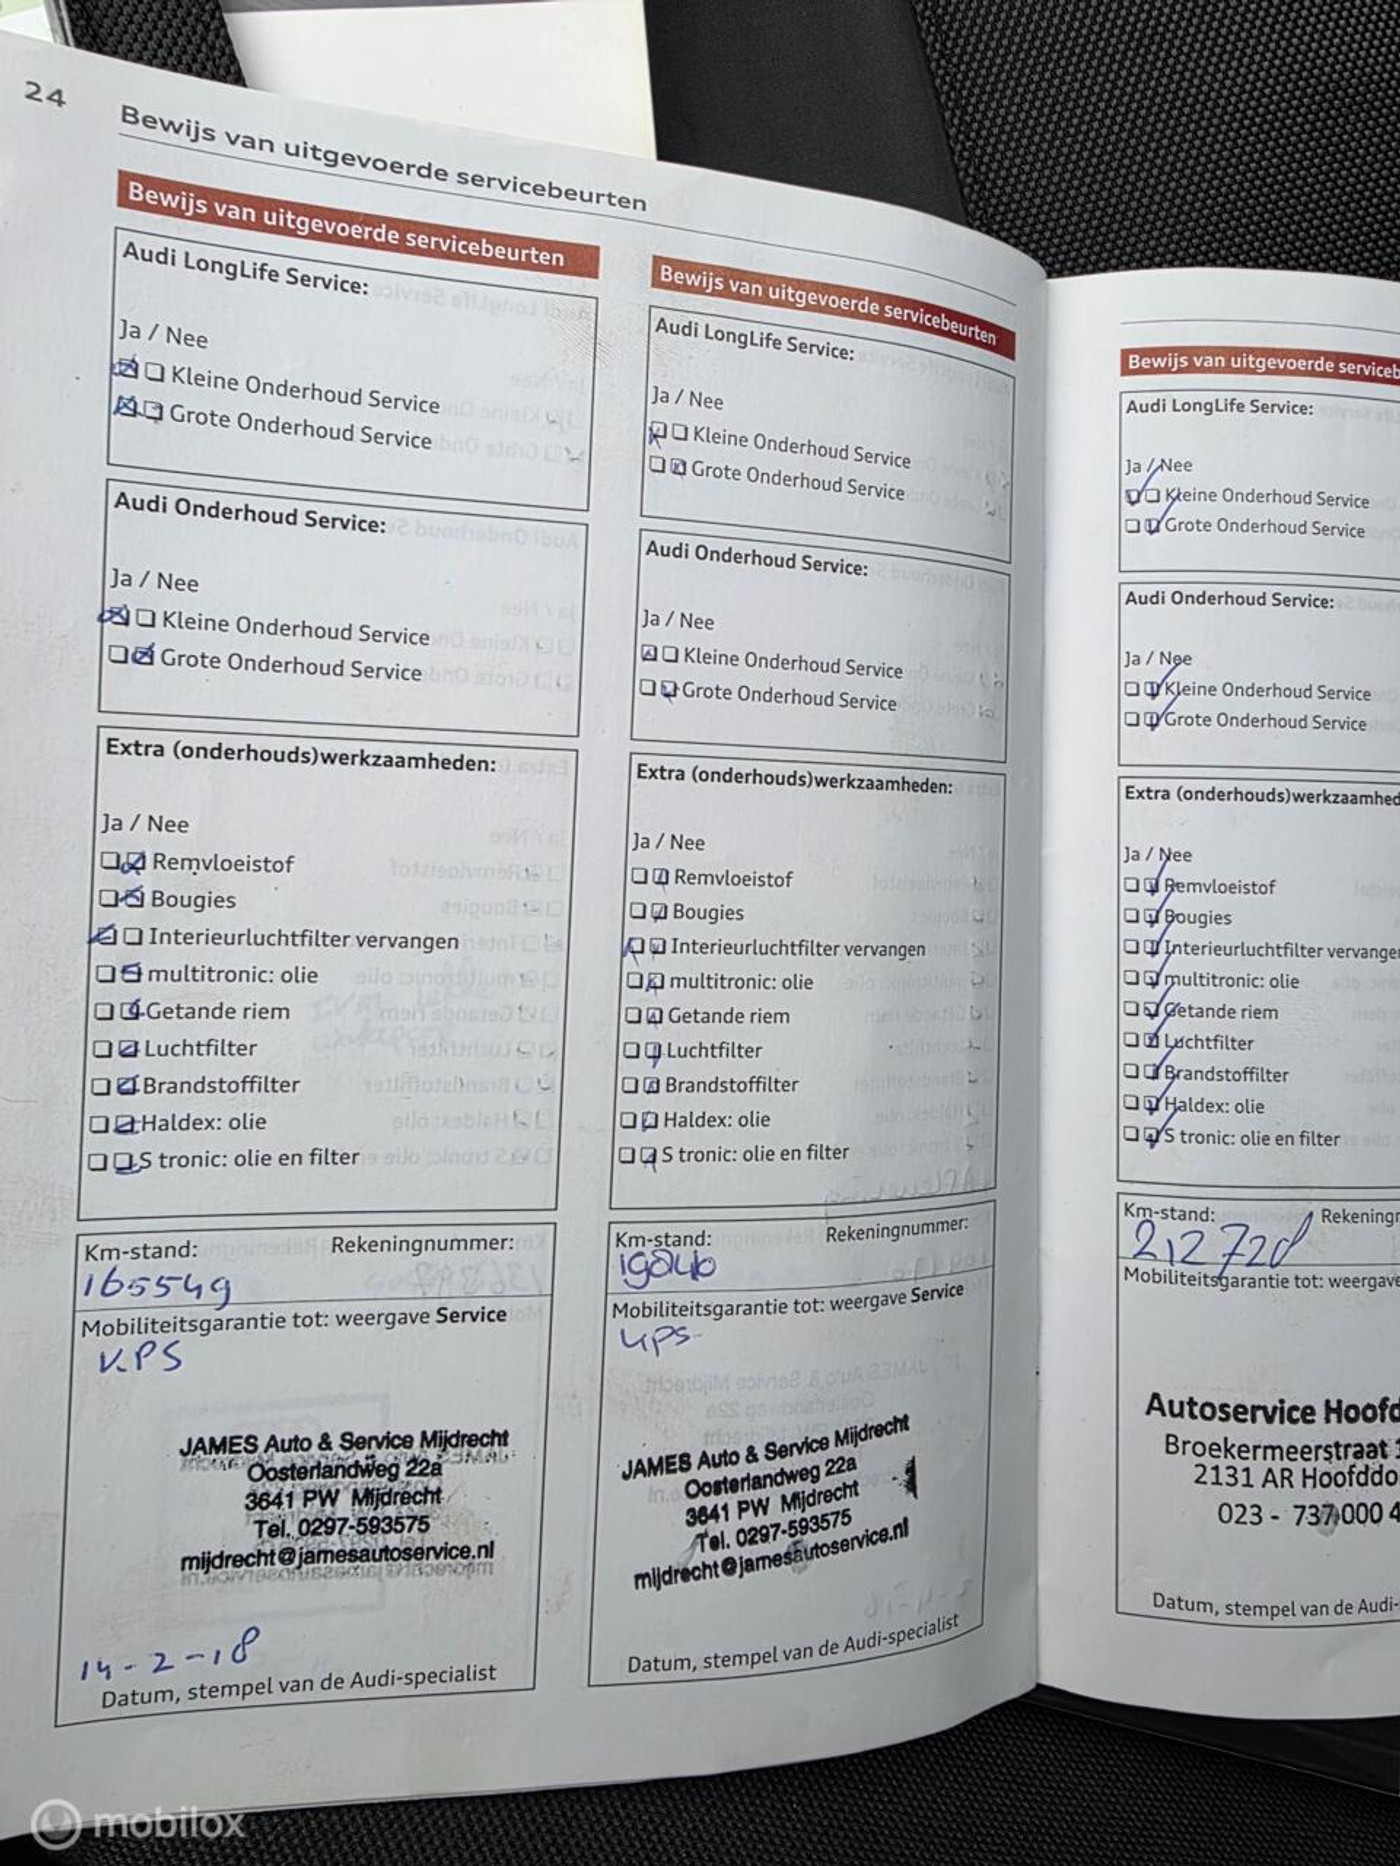 24
Bewijs van uitgevoerde servicebeurten
Bewijs van uitgevoerde servicebeurten
Audi LongLife Service:
Ja / Nee
Kleine Onderhoud Service
Grote Onderhoud Service
Audi Onderhoud Service:
Ja / Nee
Kleine Onderhoud Service
Grote Onderhoud Service
Extra (onderhouds)werkzaamheden:
Ja / Nee
Remvloeistof
Bougies
Interieurluchtfilter vervangen
multitronic: olie
Getande riem
Luchtfilter
Brandstoffilter
Haldex: olie
S tronic: olie en filter
Km-stand: Rekeningnummer:
165549
Mobiliteitsgarantie tot: weergave Service
V.P.S
JAMES Auto & Service Mijdrecht
Oosterlandweg 22a
3641 PW Mijdrecht
Tel. 0297-593575
mijdrecht@jamesautoservice.nl
14-2-18
Datum, stempel van de Audi-specialist
Bewijs van uitgevoerde servicebeurten
Audi LongLife Service:
Ja / Nee
Kleine Onderhoud Service
Grote Onderhoud Service
Audi Onderhoud Service:
Ja / Nee
Kleine Onderhoud Service
Grote Onderhoud Service
Extra (onderhouds)werkzaamheden:
Ja / Nee
Remvloeistof
Bougies
Interieurluchtfilter vervangen
multitronic: olie
Getande riem
Luchtfilter
Brandstoffilter
Haldex: olie
S tronic: olie en filter
Km-stand: Rekeningnummer:
Mobiliteitsgarantie tot: weergave Service
JAMES Auto & Service Mijdrecht
Oosterlandweg 22a
3641 PW Mijdrecht
Tel. 0297-593575
mijdrecht@jamesautoservice.nl
Datum, stempel van de Audi-specialist
Bewijs van uitgevoerde serviceb
Audi LongLife Service:
Ja / Nee
Kleine Onderhoud Service
Grote Onderhoud Service
Audi Onderhoud Service:
Ja / Nee
Kleine Onderhoud Service
Grote Onderhoud Service
Extra (onderhouds)werkzaamhed
Ja / Nee
Remvloeistof
Bougies
Interieurluchtfilter vervange
multitronic: olie
Getande riem
Luchtfilter
Brandstoffilter
Haldex: olie
S tronic: olie en filter
Km-stand: Rekeningn
212728
Mobiliteitsgarantie tot: weergave
Autoservice Hoofd
Broekermeerstraat
2131 AR Hoofddo
023 - 737 000 4
Datum, stempel van de Audi-
mobilox